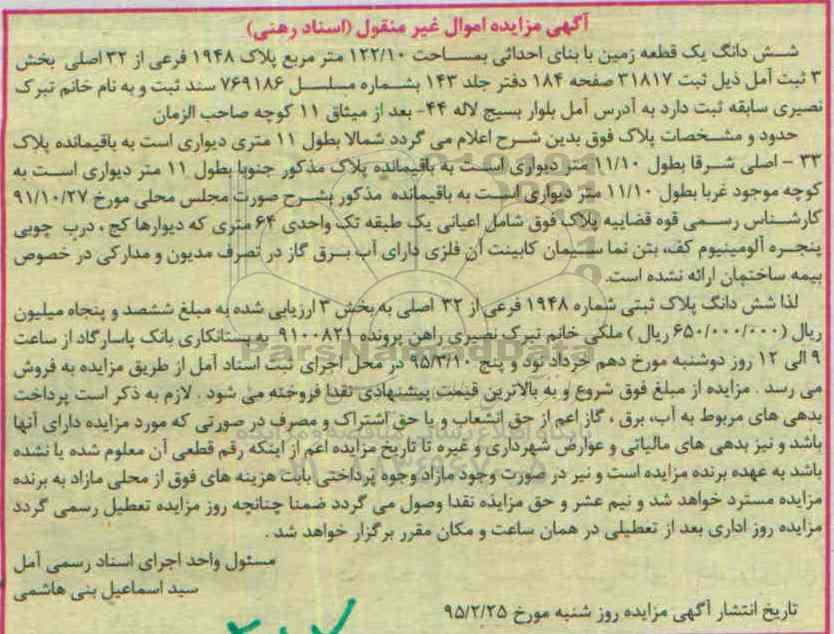 آگهی مزایده اموال غیر منقول (اسناد رهنی)
شش دانگ یک قطعه زمین با بنای احداثی بمساحت ۱۲۲/۱۰ متر مربع پلاک ۱۹۴۸ فرعی از ۳۲ اصلی بخش
۳ ثبت آمل ذیل ثبت ۳۱۸۱۷ صفحه ۱۸۴ دفتر جلد ۱۴۳ بشماره مسلسل ۷۶۹۱۸۶ سند ثبت و به نام خانم تبرک
نصیری سابقه ثبت دارد به آدرس آمل بلوار بسیج لاله ۴۴- بعد از میثاق ۱۱ کوچه صاحب الزمان
حدود و مشخصات پلاک فوق بدین شرح اعلام می گردد شمالا بطول ۱۱ متری دیواری است به باقیمانده پلاک
۳۳ - اصلی شرقا بطول ۱۱/۱۰ متر دیواری است به باقیمانده پلاک مذکور جنوبا بطول ۱۱ متر دیواری است به
کوچه موجود غربا بطول ۱۱/۱۰ متر دیواری است به باقیمانده مذکور بشرح صورت مجلس محلی مورخ ۹۱/۱۰/۲۷
کارشناس رسمی قوه قضاییه پلاک فوق شامل اعیانی یک طبقه تک واحدی ۶۴ متری که دیوارها کچ ، درب چوبی
پنجره آلومینیوم کف، بتن نما سیمان کابینت آن فلزی دارای آب برق گاز در تصرف مدیون و مدارکی در خصوص
بیمه ساختمان ارائه نشده است.
لذا شش دانگ پلاک ثبتی شماره ۱۹۴۸ فرعی از ۳۲ اصلی به بخش ۳ ارزیابی شده به مبلغ ششصد و پنجاه میلیون
ریال (۶۵۰/۰۰۰/۰۰۰ ریال ) ملکی خانم تبرک نصیری راهن پرونده ۹۱۰۰۸۲۱ به بستانکاری بانک پاسارگاد از ساعت
۹ الی ۱۲ روز دوشنبه مورخ دهم خرداد نود و پنج ۹۵/۳/۱۰ در محل اجرای ثبت اسناد آمل از طریق مزایده به فروش
می رسد . مزایده از مبلغ فوق شروع و به بالاترین قیمت پیشنهادی نقدا فروخته می شود . لازم به ذکر است پرداخت
بدهی های مربوط به آب، برق ، گاز اعم از حق انشعاب و یا حق اشتراک و مصرف در صورتی که مورد مزایده دارای آنها
باشد و نیز بدهی های مالیاتی و عوارض شهرداری و غیره تا تاریخ مزایده اعم از اینکه رقم قطعی آن معلوم شده یا نشده
باشد به عهده برنده مزایده است و نیر در صورت وجود مازاد وجوه پرداختی بابت هزینه های فوق از محلی مازاد به برنده
مزایده مسترد خواهد شد و نیم عشر و حق مزایده نقدا وصول می گردد ضمنا چنانچه روز مزایده تعطیل رسمی گردد
مزایده روز اداری بعد از تعطیلی در همان ساعت و مکان مقرر برگزار خواهد شد .
مسئول واحد اجرای اسناد رسمی آمل
سید اسماعیل بنی هاشمی
تاریخ انتشار آگهی مزایده روز شنبه مورخ ۹۵/۲/۲۵
ParsNamadData